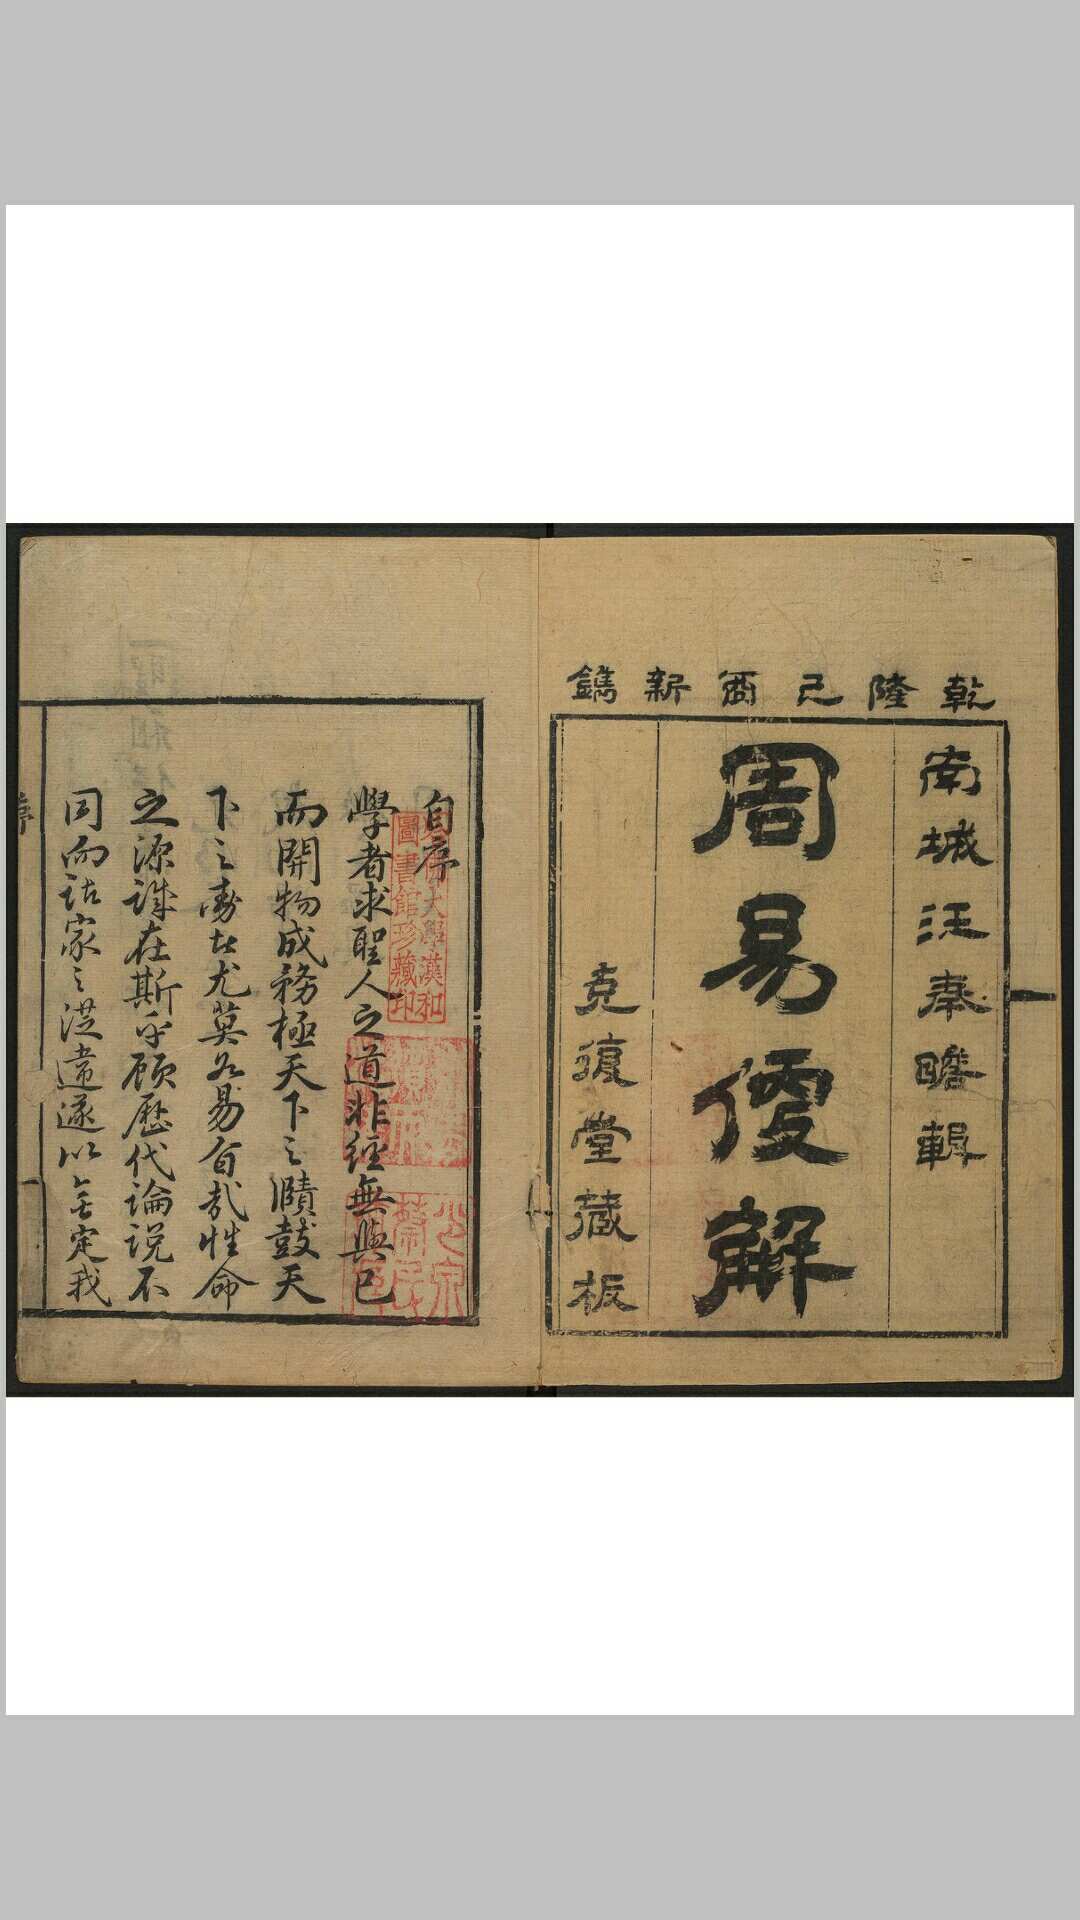 乾隆己酉新鐫
南城汪泰瞻輯
周易便解
克復堂藏板
自序
學者求聖人之道非經無與已
而開物成務極天下之賾鼓天
下之動者尤莫若易旨哉性命
之源誠在斯乎顧歷代論說不
同而詁家之從違遂以無定我
大學漢和
圖書館珍藏印
序